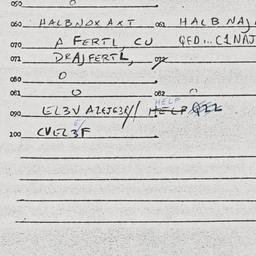 050 O
060 HALBNOX AXT 061 HALB NAJ
070 A FERTL, CU QED...C1NAJ
071 DRAJFERTL, 072
080 O
081 O 082 O
HELP
090 EL3V AZEJG3R// HELP
100 CVEL3F